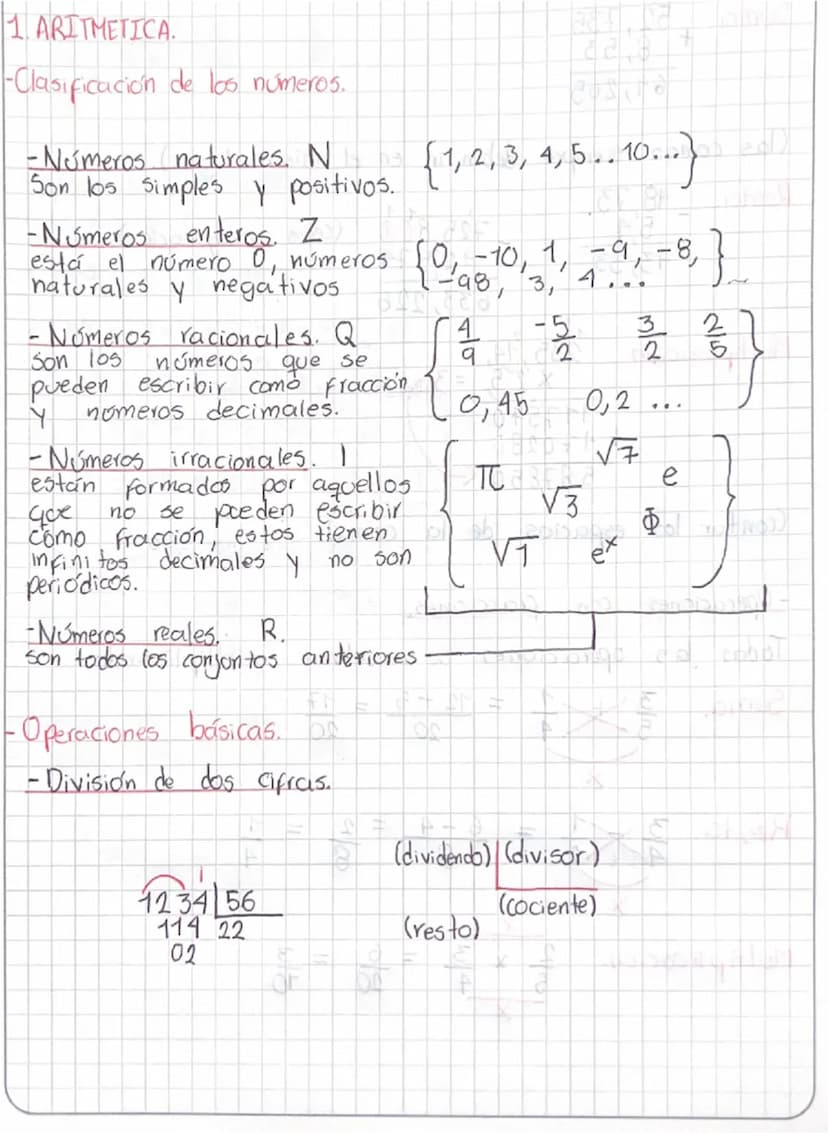 1. ARITMETICA.
-Clasificación de los números.
-Números naturales. N {1, 2, 3, 4, 5.. 10...}
Son los simples y positivos.
-Números enteros. Z
está el número 0, números {0, -10, 1, -9, -8, }
naturales y negativos -98, 3, 4...
- Números racionales. Q 4/9 -5/2 3/2 2/5
son los números que se
pueden escribir como fracción
y números decimales. 0,45 0,2 ...
- Números irracionales. I √7
están formados por aquellos π e
que no se pueden escribir √3
como fracción, estos tienen Φ
infinitos decimales y no son √1 eˣ
periódicos.
-Números reales. R.
son todos los conjuntos anteriores
- Operaciones básicas.
- División de dos cifras.
(dividendo) (divisor)
1234 56 (cociente)
114 22 (resto)
02